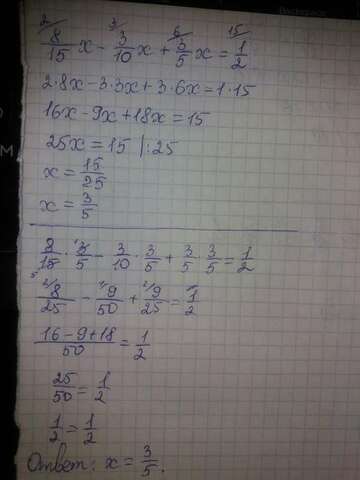 2 3 6 15
8/15 x - 3/10 x + 3/5 x = 1/2
2·8x - 3·3x + 3·6x = 1·15
16x - 9x + 18x = 15
25x = 15 |:25
x = 15/25
x = 3/5
8/15 · 3/5 - 3/10 · 3/5 + 3/5 · 3/5 = 1/2
8/25 - 9/50 + 9/25 = 1/2
(16-9+18)/50 = 1/2
25/50 = 1/2
1/2 = 1/2
Ответ: x = 3/5.